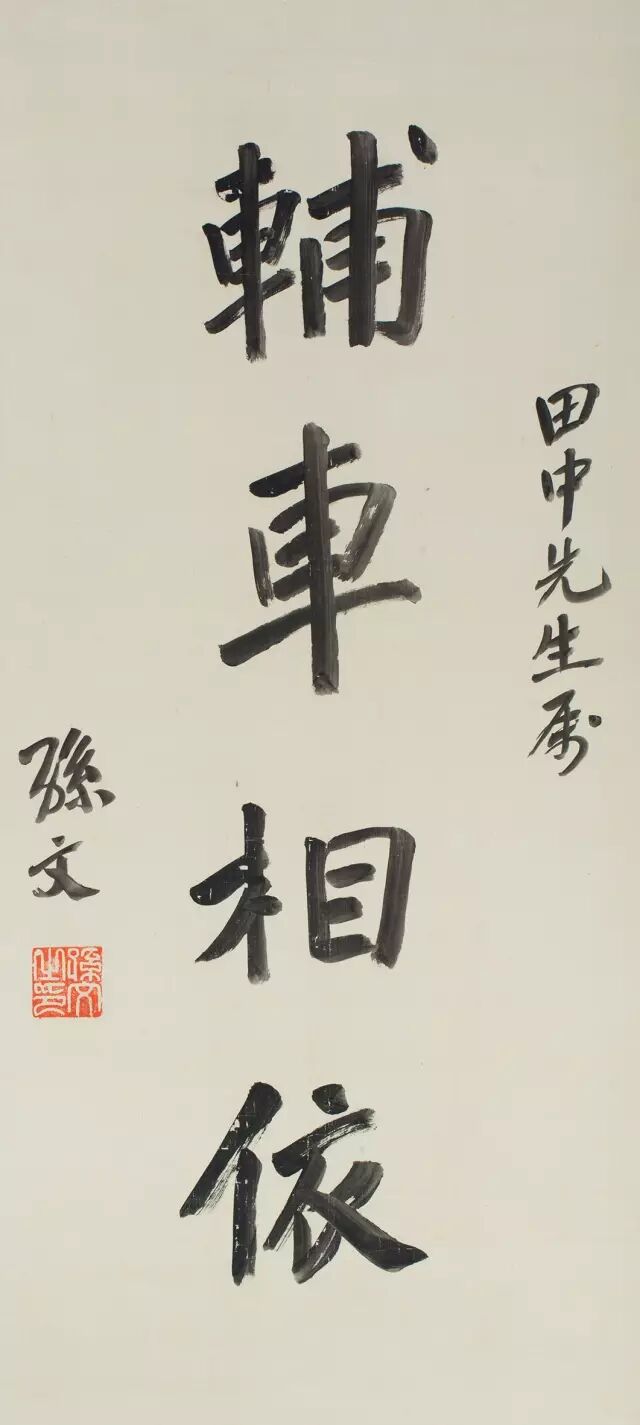 田中先生属
輔車相依
孫文
孫文之印